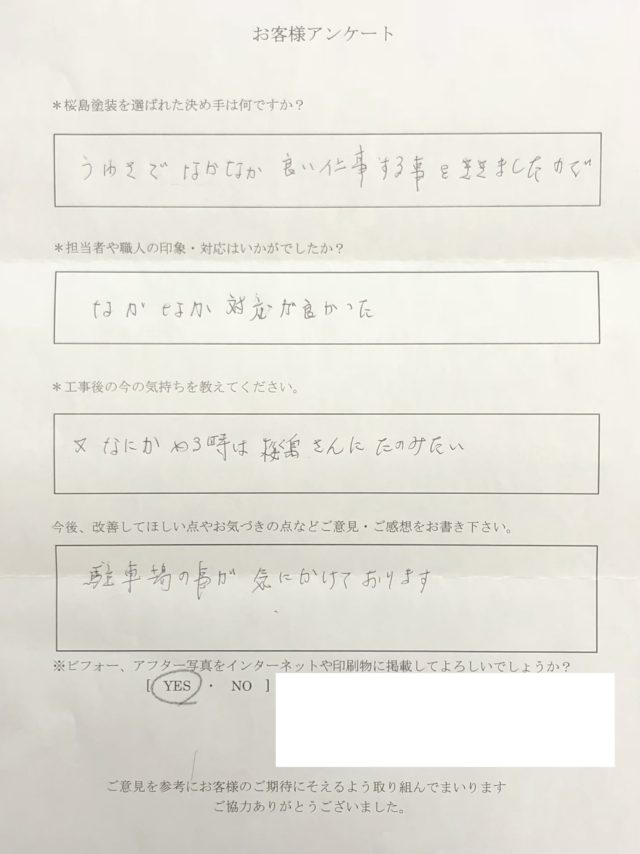 お客様アンケート
＊桜島塗装を選ばれた決め手は何ですか？
うわさで なかなか 良い仕事する事をききましたので
＊担当者や職人の印象・対応はいかがでしたか？
なかなか対応が良かった
＊工事後の今の気持ちを教えてください。
又 なにかやる時は桜島さんにたのみたい
今後、改善してほしい点やお気づきの点などご意見・ご感想をお書き下さい。
駐車場の事が 気にかけております
※ビフォー、アフター写真をインターネットや印刷物に掲載してよろしいでしょうか？
[ YES ・ NO ]
ご意見を参考にお客様のご期待にそえるよう取り組んでまいります
ご協力ありがとうございました。